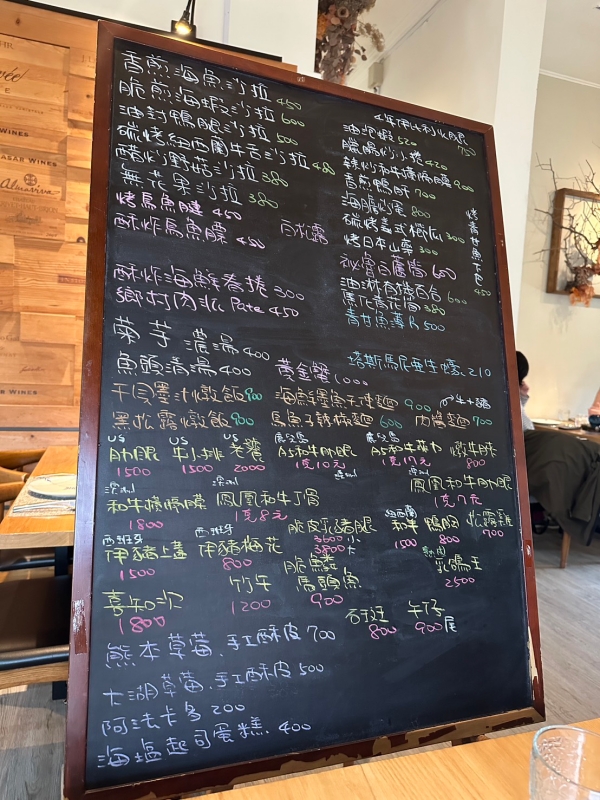 香煎海魚沙拉 450
脆煎海蝦沙拉 600
油封鴨腿沙拉 500
碳烤紐西蘭牛舌沙拉 480
醋炒野菇沙拉 380
無花果沙拉 380
烤烏魚腱 450
酥炸烏魚膘 450
百花露
酥炸海鮮春捲 300
鄉村肉派 Pate 450
4年伊比利火腿 750
油泡蝦 520
臘腸炒小卷 420
鐵炒和牛橫隔膜 900
香煎鴨肝 700
海膽炒蛋 800
碳烤義式櫛瓜 300
烤日本山藥 300
秘魯白蘆筍 600
油漬有機百合 600
黑松花筒 380
青甘魚薄片 500
烤青甘魚下巴 450
菊芋濃湯 400
魚頭清湯 400
黃金蟹 1000
塔斯馬尼亞生蠔 210
干貝墨汁燉飯 900
海鮮墨魚天使麵 900
黑松露燉飯 900
烏魚子辣椒麵 600
肉醬麵 700
US 肋眼 1500
US 牛小排 1500
US 老饕 2000
鹿兒島 A5和牛肋眼 1克10元
鹿兒島 A5和牛菲力 1克17元
燉牛肚 800
澳洲 和牛橫隔膜 1800
澳洲 鳳凰和牛丁骨 1克8元
澳洲 鳳凰和牛肋眼 1克7元
西班牙 伊豬上蓋 1500
西班牙 伊豬梅花 800
脆皮乳豬腿 3600小 3800大
紐西蘭 和羊 1500
鴨胸 800
松露雞 700
乳鴿王 2500
喜知次 1800
竹午 1200
脆鱗馬頭魚 900
石斑 800
午仔 900尾
熊本草莓、手工酥皮 700
大湖草莓、手工酥皮 500
阿法卡多 200
海塩起司蛋糕. 400
WINES
Almaviva
WINES
WINES